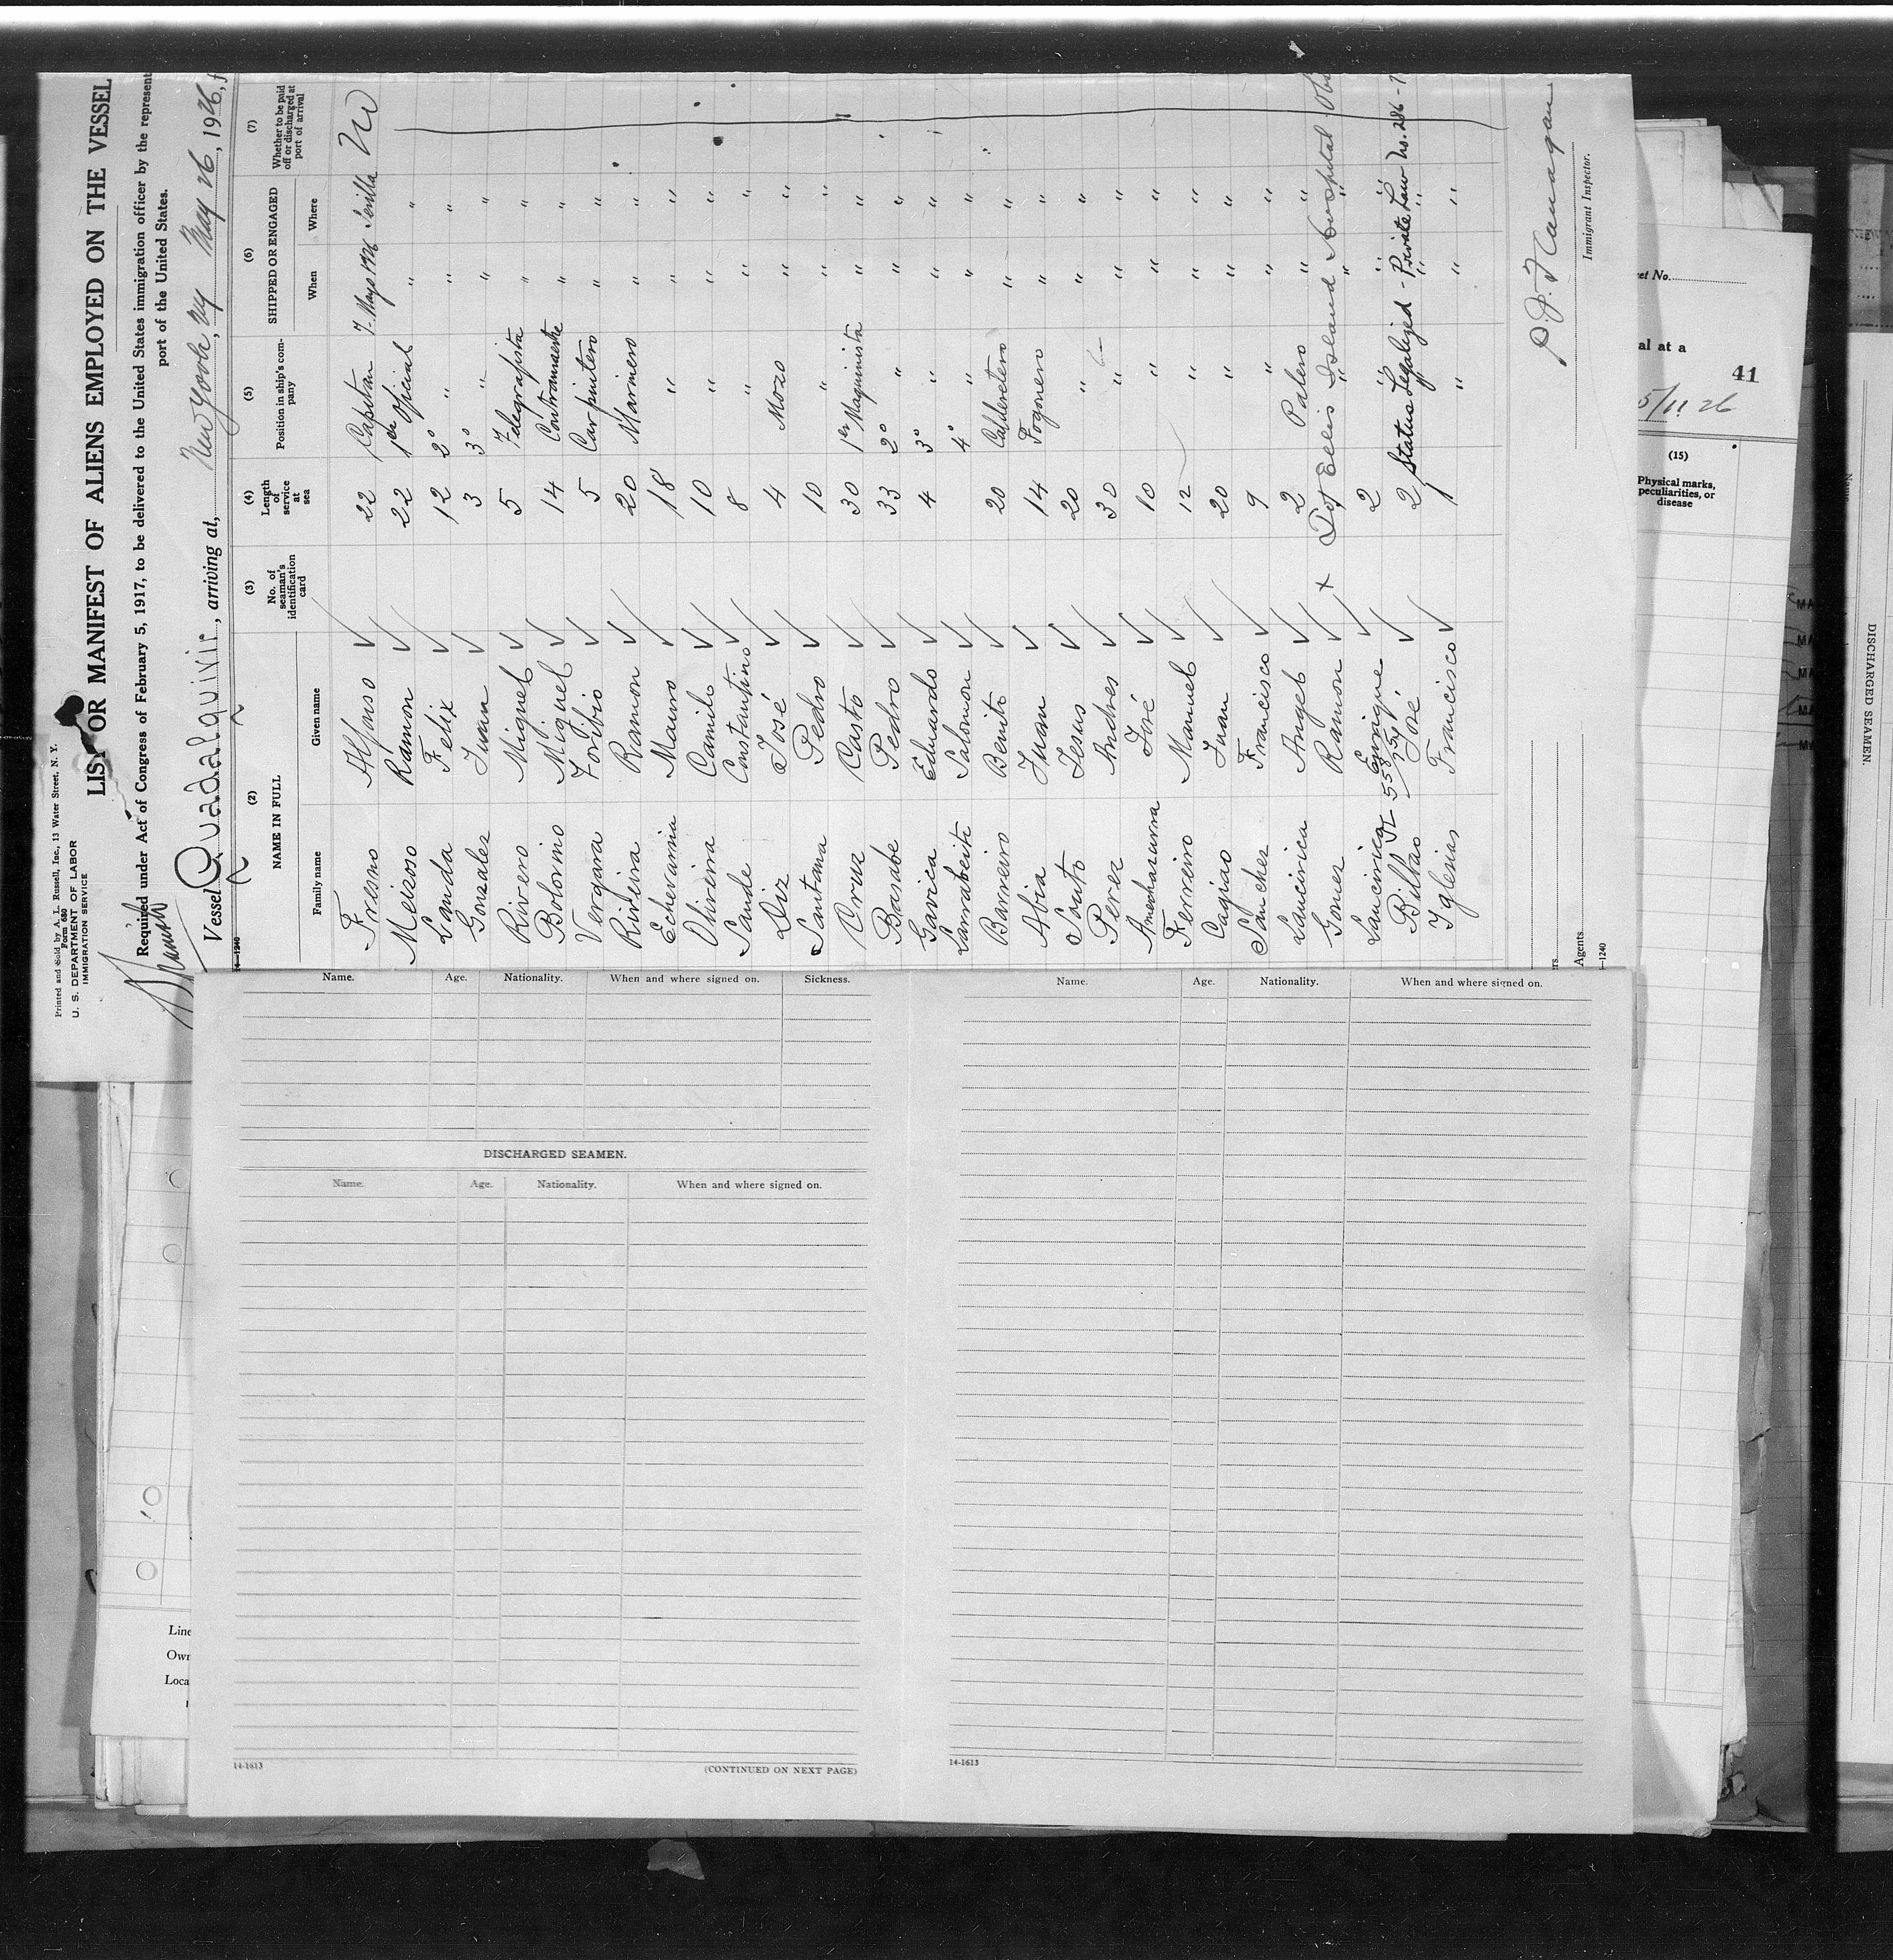 Printed and Sold by A. L. Russell, Inc., 13 Water Street, N. Y.
Form 680
U. S. DEPARTMENT OF LABOR
IMMIGRATION SERVICE
LIST OR MANIFEST OF ALIENS EMPLOYED ON THE VESSEL
Required under Act of Congress of February 5, 1917, to be delivered to the United States immigration officer by the represent
port of the United States.
Vessel Guadalquivir, arriving at, New York, NY May 26, 1926, f
14-1240
(2) (3) (4) (5) (6) (7)
NAME IN FULL
No. of seaman's identification card
Length of service at sea
Position in ship's company
SHIPPED OR ENGAGED
Whether to be paid off or discharged at port of arrival
Family name Given name When Where
Fresno Alfonso 22 Capitan 7 Mayo 1926 Sevilla No
Meizoso Ramon 22 1er Oficial " "
Landa Felix 12 2° " " "
Gonzalez Juan 3 3° " " "
Rivero Miguel 5 Telegrafista " "
Bolorino Miguel 14 Contramaestre " "
Vergara Toribio 5 Carpintero " "
Riveira Ramon 20 Marinero " "
Echevarria Mauro 18 " " "
Oliveira Camilo 10 " " "
Sande Constantino 8 " " "
Diz José 4 Mozo " "
Santana Pedro 10 " " "
Cruz Casto 30 1er Maquinista " "
Basabe Pedro 33 2° " " "
Gavica Eduardo 4 3° " " "
Larrabeiti Salomon 4° " " "
Barreiro Benito 20 Calderetero " "
Abia Juan 14 Fogonero " "
Souto Jesus 20 " " "
Perez Andres 30 " " "
Amechazurra José 10 " " "
Ferreiro Manuel 12 " " "
Cagiao Juan 20 " " "
Sanchez Francisco 9 " " "
Laucirica Angel 2 Palero " "
Gomez Ramon x Dot Ellis Island Hospital Obs
Laucirica Enrique 2 " " "
Bilbao José 2 Status Legalized - Private Law No. 286 - 7
Iglesias Francisco 1 " " "
P. J. Flanagan
Immigrant Inspector.
Agents
-1240
et No.
al at a
41
5/11 26
(15)
Physical marks, peculiarities, or disease
DISCHARGED SEAMEN.
Name. Age. Nationality. When and where signed on. Sickness.
DISCHARGED SEAMEN.
Name. Age. Nationality. When and where signed on.
14-1613
(CONTINUED ON NEXT PAGE)
Name. Age. Nationality. When and where signed on.
14-1613
Line
Own
Loca